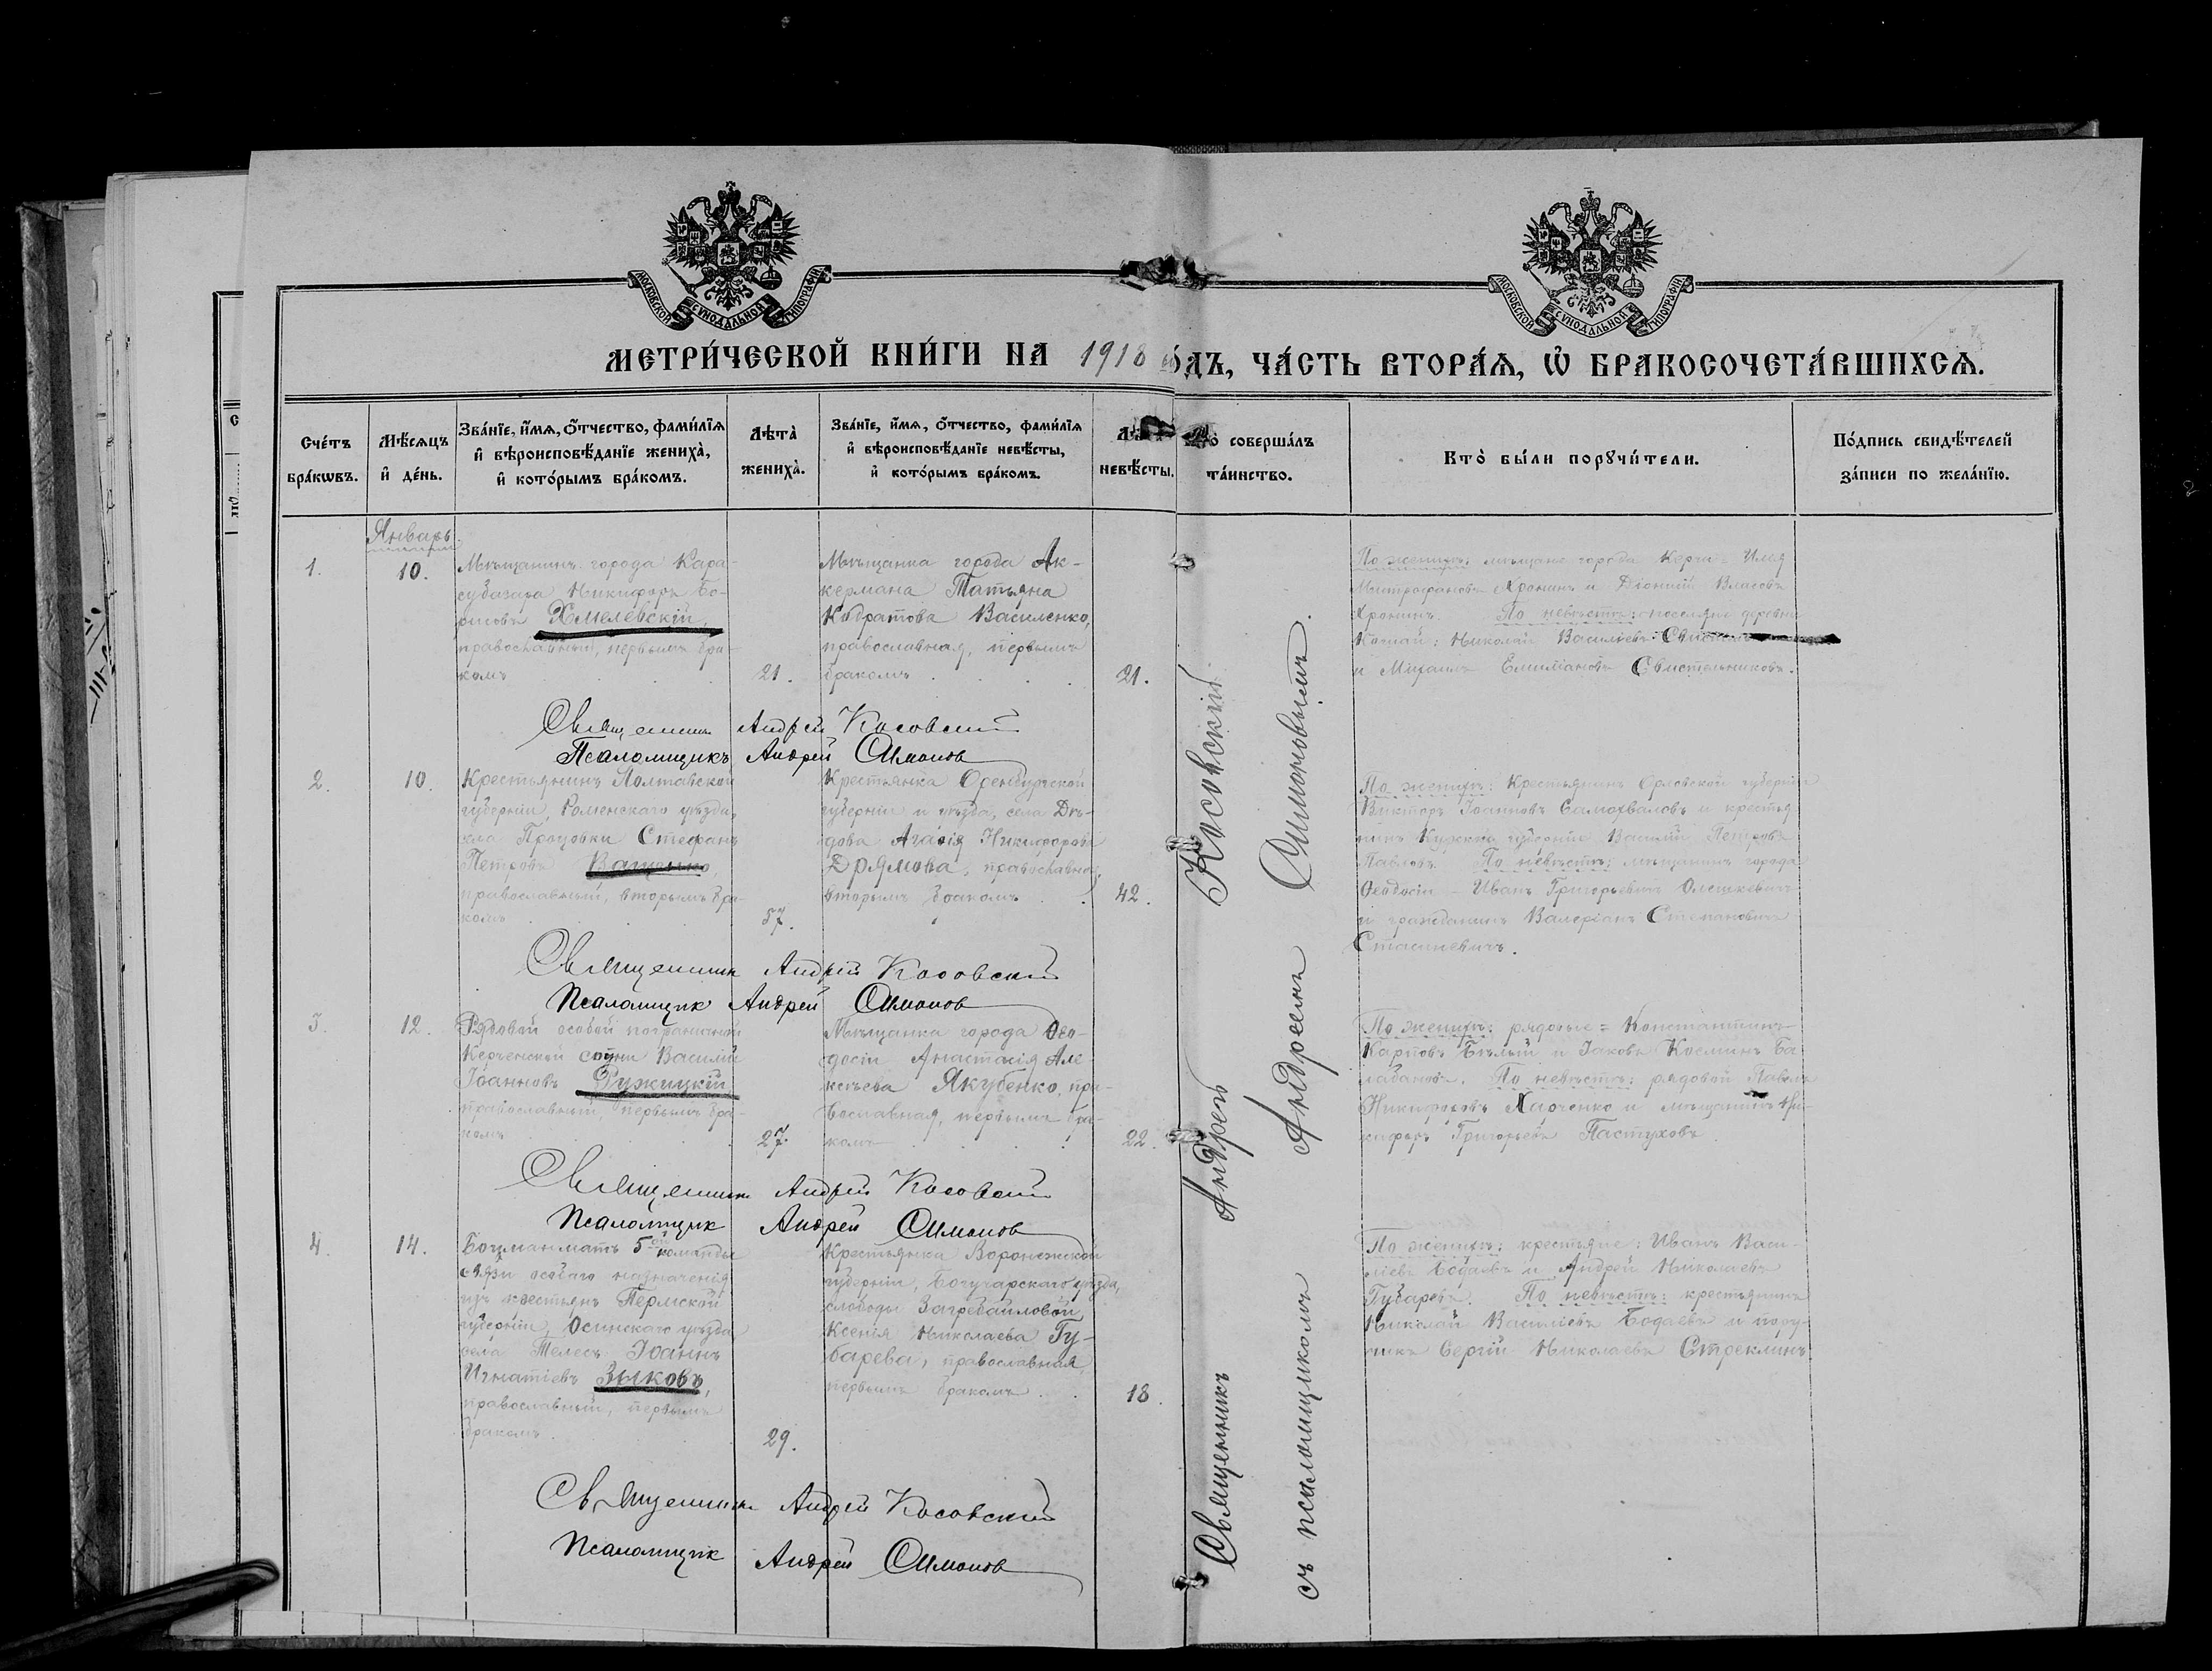 МОСКОВСКОЙ СУНОДАЛЬНОЙ ТИПОГРАФІИ
МОСКОВСКОЙ СУНОДАЛЬНОЙ ТИПОГРАФІИ
МЕТРИ́ЧЕСКОЙ КНИ́ГИ НА 1918 го́дъ, ЧА́СТЬ ВТОРА́Я, Ѽ БРАКОСОЧЕТА́ВШИХСѦ.
Сче́тъ бра́кѡвъ.
Мѣ́сѧцъ и҆ де́нь.
Зва́нїе, и҆́мѧ, ѻ҆́тчество, фами́лїѧ и҆ вѣроисповѣ́данїе жениха̀, и҆ кото́рымъ бра́комъ.
Лѣта̀ жениха̀.
Зва́нїе, и҆́мѧ, ѻ҆́тчество, фами́лїѧ и҆ вѣроисповѣ́данїе невѣ́сты, и҆ кото́рымъ бра́комъ.
невѣ́сты.
соверша́лъ та́инство.
Кто̀ бы́ли порꙋчи́тели.
По́дпись свидѣ́телей за́писи по жела́нїю.
Январь.
1.
10.
Мѣщанинъ города Кара-
субазара Никифоръ Бо-
рисовъ Хмелевскій,
православный, первымъ бра-
комъ
21.
Мѣщанка города Ак-
кермана Татьяна
Кодратова Василенко,
православная, первымъ
бракомъ
21.
По женихѣ: мѣщане города Керчи = Илья
Митрофановъ Хронинъ и Діонисій Власовъ
Хронинъ. По невѣстѣ: поселяне деревни
Николай Василіевъ
и Михаилъ Емиліановъ Свистельниковъ.
Священник Андрей Косовский
Псаломщикъ Андрей Симонов
2.
10.
Крестьянинъ Полтавской
губерніи, Роменскаго уѣзда,
села Процовки Стефанъ
Петровъ Ващенко,
православный, вторымъ бра-
комъ
57.
Крестьянка Оренбургской
губерніи и уѣзда, села Дѣ-
дова Агаѳія Никифорова
Дрямова, православная,
вторымъ бракомъ
42.
По женихѣ: Крестьянинъ Орловской губерніи
Викторъ Іоанновъ Самохваловъ и крестья-
нинъ Курской губерніи Василій Петровъ
Павловъ. По невѣстѣ: мѣщанинъ города
Ѳеодосіи - Иванъ Григорьевичъ Олешкевичъ
и гражданинъ Валеріанъ Степановичъ
Стасиневичъ.
Священник Андрей Косовский
Псаломщик Андрей Симонов
3.
12.
Рядовой особой пограничной
Керченской сотни Василій
Іоанновъ Ружицкій,
православный, первымъ бра-
комъ
27.
Мѣщанка города Ѳео-
досіи Анастасія Але-
ксѣева Якубенко, пра-
вославная, первымъ бра-
комъ
22.
По женихѣ: рядовые = Константинъ
Карповъ Бѣлый и Іаковъ Косминъ Ба-
лабановъ. По невѣстѣ: рядовой Павелъ
Никифоровъ Харченко и мѣщанинъ Ни-
кифоръ Григорьевъ Пастуховъ.
Священник Андрей Косовский
Псаломщик Андрей Симонов
4.
14.
Боцманматъ 5ой команды
связи особаго назначенія
изъ крестьянъ Пермской
губерніи, Осинскаго уѣзда
села Телесъ Іоаннъ
Игнатіевъ Зыковъ,
православный, первымъ
бракомъ.
29.
Крестьянка Воронежской
губерніи, Богучарскаго уѣзда,
слободы Загребайловой
Ксенія Николаева Гу-
барева, православная,
первымъ бракомъ
18.
По женихѣ: крестьяне: Иванъ Васи-
ліевъ Бодаевъ и Андрей Николаевъ
Губаревъ. По невѣстѣ: крестьянинъ
Николай Василіевъ Бодаевъ и пору-
чикъ Сергій Николаевъ Стреклинъ
Священник Андрей Косовский
Псаломщик Андрей Симонов
Священникъ Андрей Косовскій
съ псаломщикомъ Андреемъ Симоновымъ.